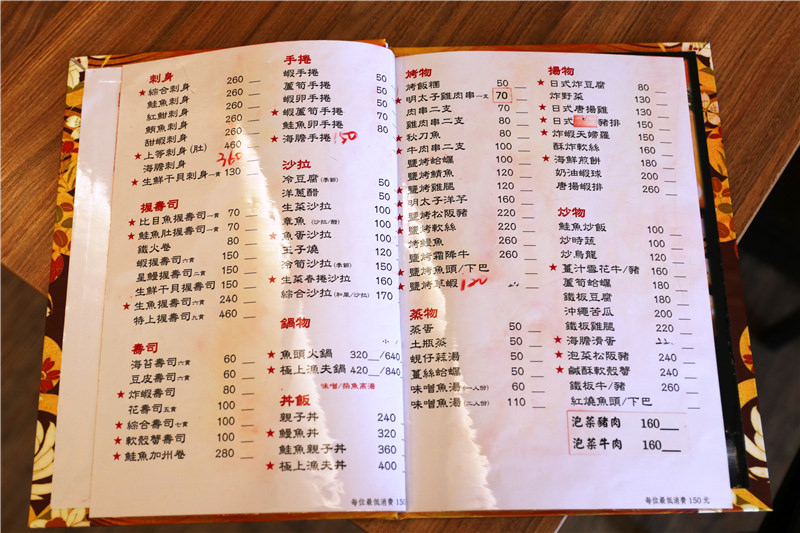 刺身
★綜合刺身 260
鮭魚刺身 260
紅魽刺身 260
鮪魚刺身 260
甜蝦刺身 260
★上等刺身(肚) 460
海膽刺身 360
★生鮮干貝刺身一貫 130
握壽司
★比目魚握壽司一貫 70
★鮭魚肚握壽司一貫 70
鐵火卷 80
蝦握壽司六貫 150
星鰻握壽司二貫 150
生鮮干貝握壽司 150
★生魚握壽司六貫 240
特上握壽司九貫 460
壽司
海苔壽司六貫 60
豆皮壽司六貫 60
★炸蝦壽司 80
花壽司五貫 100
★綜合壽司七貫 100
★軟殼蟹壽司 100
★鮭魚加州卷 280
手捲
蝦手捲 50
蘆筍手捲 50
蝦卵手捲 50
★蝦蘆筍手捲 70
鮭魚卵手捲 80
★海膽手捲 150
沙拉
冷豆腐(季節) 50
洋蔥醋 50
生菜沙拉 100
章魚(沙拉/醋) 100
★魚蛋沙拉 100
玉子燒 120
冷筍沙拉(季節) 150
★生菜春捲沙拉 160
綜合沙拉(和風/沙拉) 170
鍋物
小/
★魚頭火鍋 320__/640
★極上漁夫鍋 420__/840
味噌/柴魚高湯
丼飯
親子丼 240
★鰻魚丼 320
鮭魚親子丼 360
★極上漁夫丼 400
每位最低消費 150
烤物
烤飯糰 50
★明太子雞肉串一支 70
肉串二支 70
雞肉串二支 80
秋刀魚 80
★牛肉串二支 110
鹽烤蛤蠣 120
鹽烤鯖魚 120
鹽烤雞腿 120
明太子洋芋 160
★鹽烤松阪豬 220
鹽烤軟絲 220
烤鰻魚 260
鹽烤霜降牛 260
★鹽烤魚頭/下巴
★鹽烤草蝦 120
蒸物
蒸蛋 50
土瓶蒸 50
蜆仔蒜湯 50
薑絲蛤蠣 50
味噌魚湯(一人份) 60
味噌魚湯(二人份) 110
揚物
★日式炸豆腐 80
炸野菜 130
★日式唐揚雞 130
★日式 豬排 150
★炸蝦天婦羅 150
酥炸軟絲 160
★海鮮煎餅 180
奶油蝦球 200
唐揚蝦排 260
炒物
鮭魚炒飯 100
炒時蔬 100
炒烏龍 120
★薑汁雪花牛/豬 160
蘆筍蛤蠣 180
鐵板豆腐 180
沖繩苦瓜 200
鐵板雞腿 220
★海膽滑蛋
★泡菜松阪豬 220
★鹹酥軟殼蟹 220
鐵板牛/豬 260
紅燒魚頭/下巴
泡菜豬肉 160
泡菜牛肉 160
每位最低消費 150元